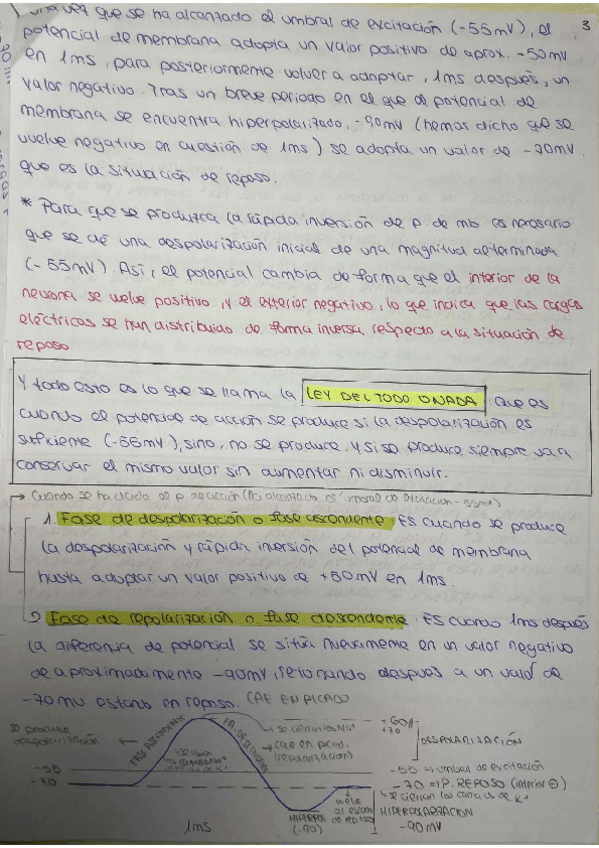 una vez que se ha alcanzado el umbral de excitación (-55mV), el 3
potencial de membrana adopta un valor positivo de aprox. +50mV
en 1ms, para posteriormente volver a adoptar, 1ms después, un
valor negativo. Tras un breve periodo en el que el potencial de
membrana se encuentra hiperpolarizado, -90mV (hemos dicho que se
vuelve negativo en cuestión de 1ms) se adopta un valor de -70mV
que es la situación de reposo.
* Para que se produzca la rápida inversión de p. de mb es necesario
que se dé una despolarización inicial de una magnitud determinada
(-55mV). Así, el potencial cambia de forma que el interior de la
neurona se vuelve positivo, y el exterior negativo, lo que indica que las cargas
eléctricas se han distribuido de forma inversa respecto a la situación de
reposo
Y todo esto es lo que se llama la LEY DEL TODO O NADA: que es
cuando el potencial de acción se produce si la despolarización es
suficiente (-55mV), sino, no se produce. Y si se produce siempre va a
conservar el mismo valor sin aumentar ni disminuir.
→ Cuando se ha dado de p de acción (ha alcanzado el umbral de excitación -55mV)
1. Fase de despolarización o fase ascendente: ES cuando se produce
la despolarización y rápida inversión del potencial de membrana
hasta adoptar un valor positivo de +50mV en 1ms.
2. Fase de repolarización o fase descendente: ES cuando 1ms después
la diferencia de potencial se sitúa nuevamente en un valor negativo
de aproximadamente -90mV, retornando después a un valor de
-70mV estando en reposo. (CAE EN PICADO)
se produce despolarización
FASE ASCENDENTE
FA. DESCENDEN
→ se cierran los Na+
→ cae en picado. (repolarización)
DESPOLARIZACIÓN
-55
-55 → umbral de excitación
-70
-70 → P. REPOSO (interior ⊖)
se cierran los canales de K+
HIPERPOL (-90)
vuelve al estado de reposo
HIPERPOLARIZACION
-90mV
1ms